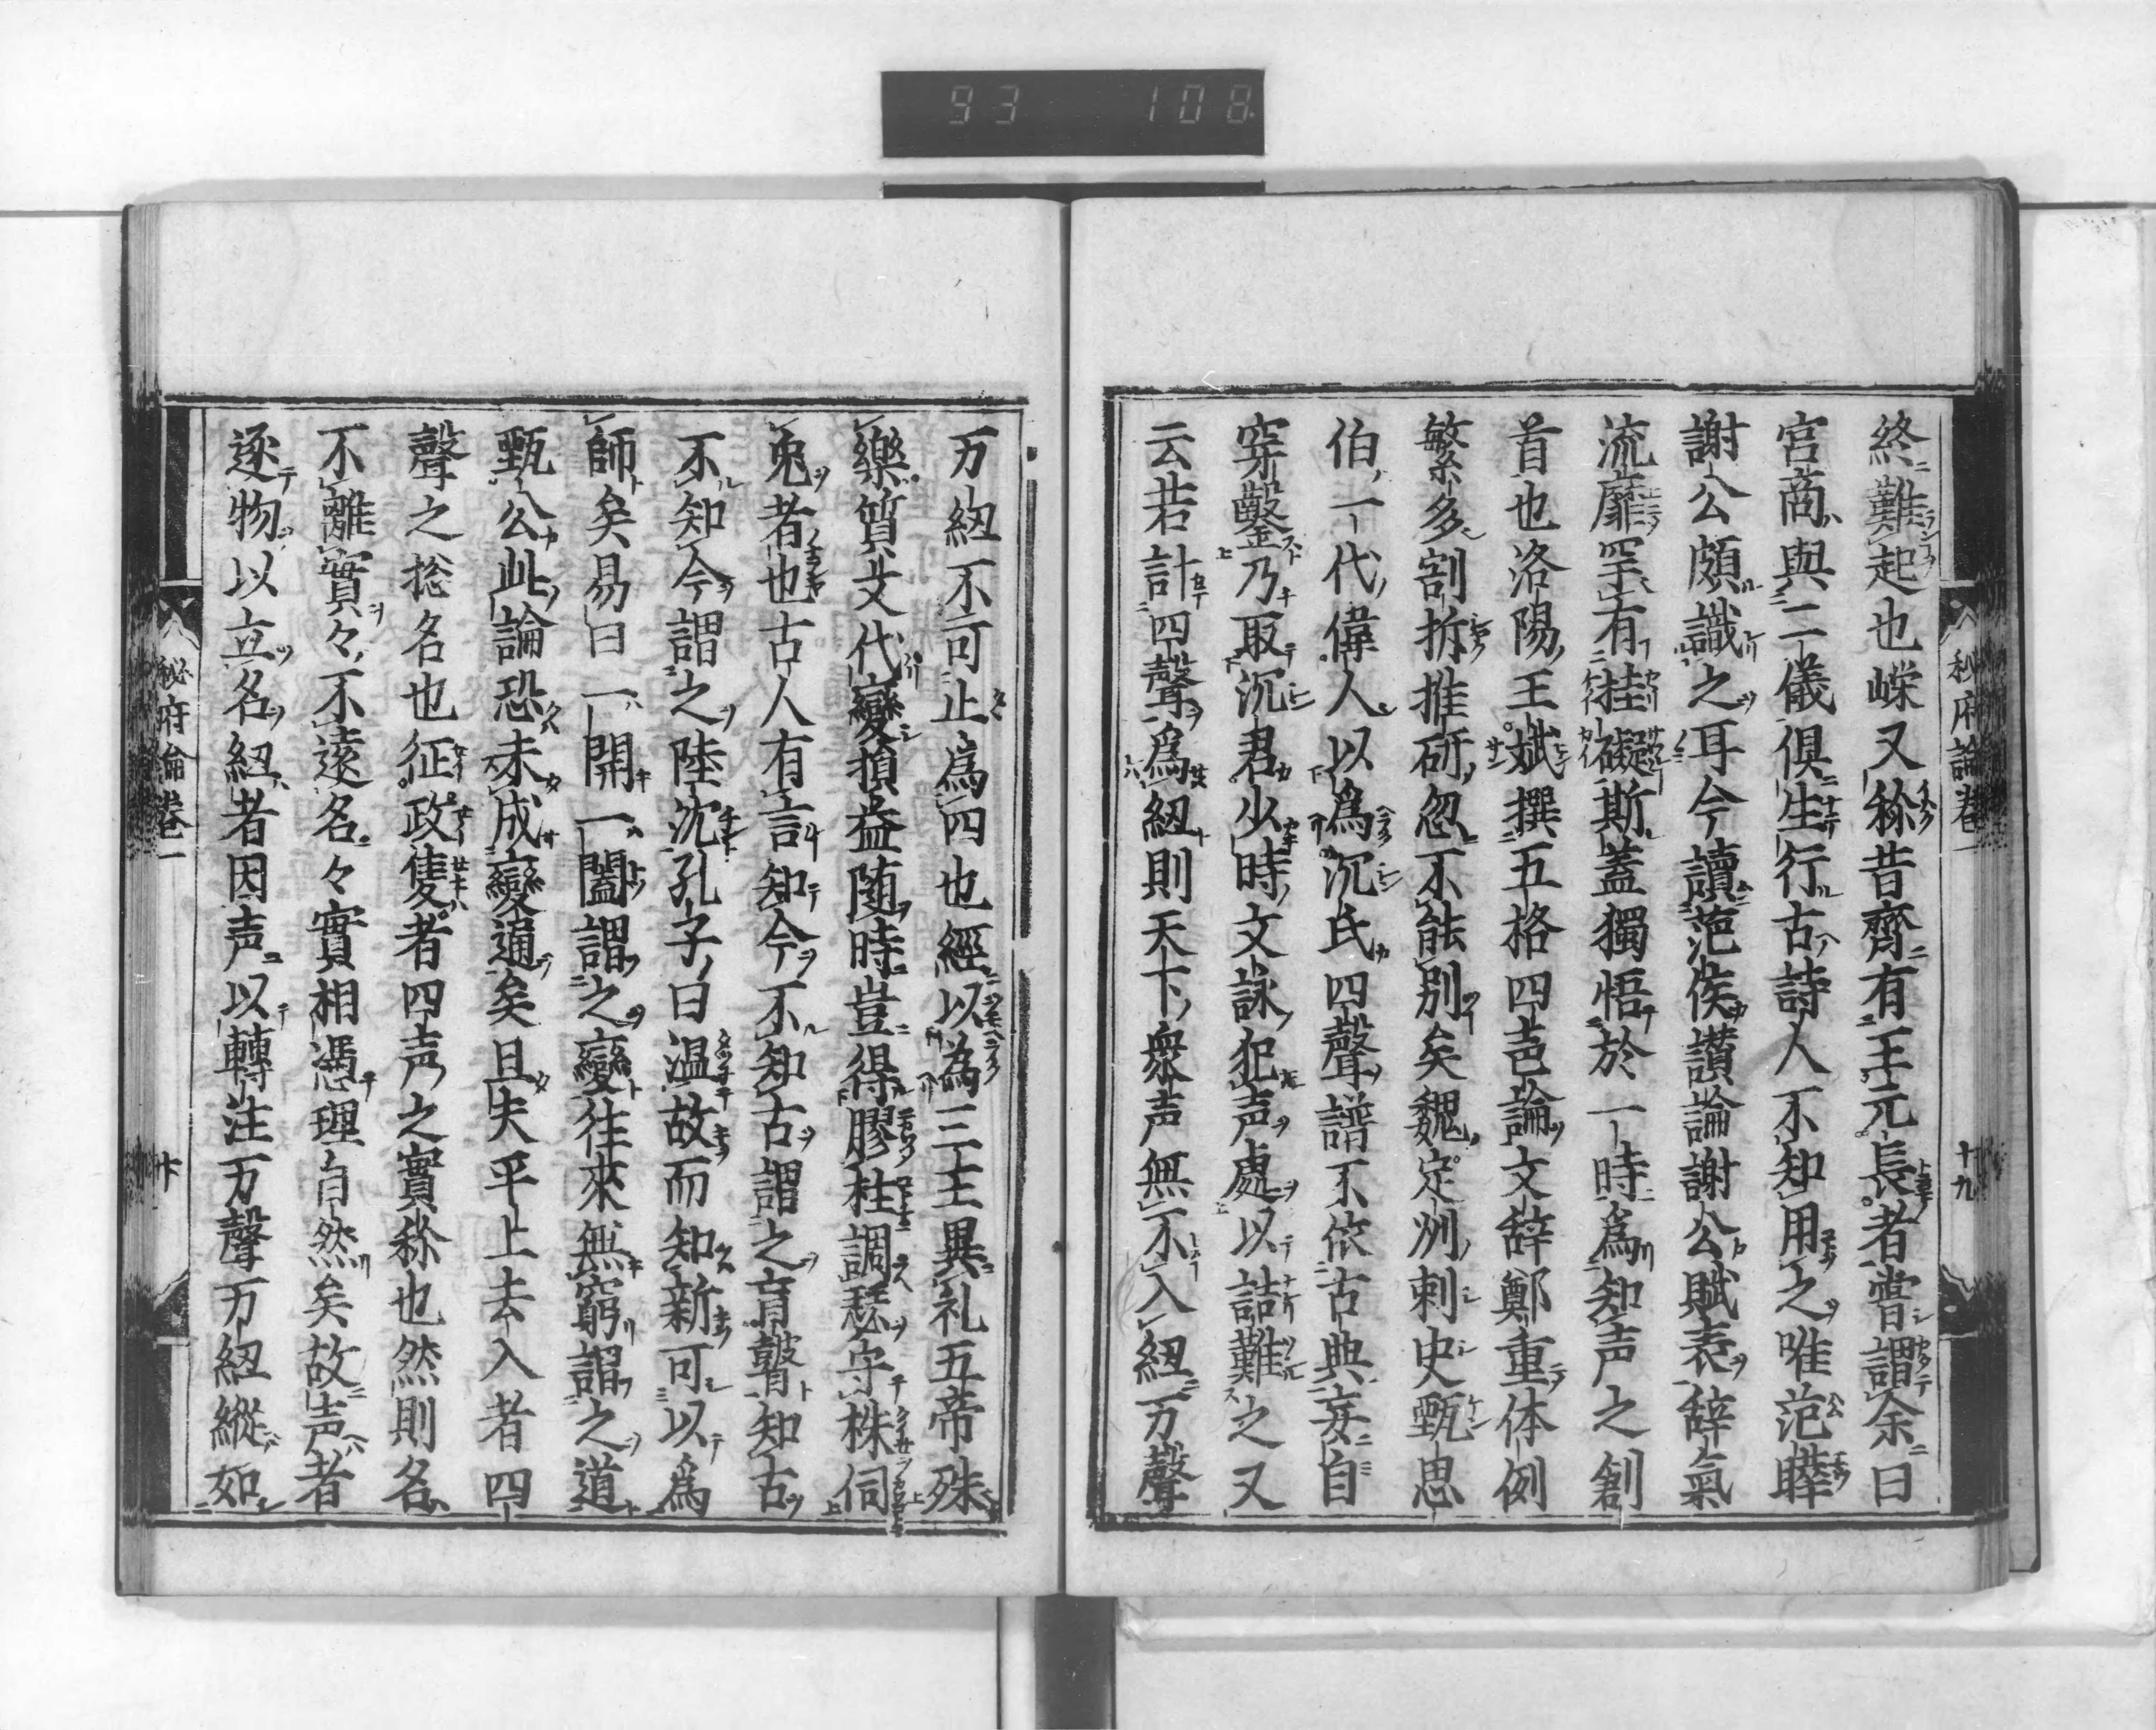 93 108
秘府論卷一 十九
終難起也嶸又称昔齊有王元長者嘗謂余曰
宮商與二儀俱生行古詩人不知用之唯范曄
謝公頗識之耳今讀范侯讃論謝公賦表辞氣
流靡罕有挂礙斯蓋獨悟於一時為知声之創
首也洛陽王斌撰五格四声論文辞鄭重体例
繁多割拆推研忽不能別矣魏定州刺史甄思
伯一代偉人以為沉氏四聲譜不依古典妄自
穿鑿乃取沉君少時文詠犯声處以詰難之又
云若計四聲為紐則天下衆声無不入紐万聲
万紐不可止為四也經以為三王異礼五帝殊
樂質文代變損益随時豈得膠柱調瑟守株伺
兎者也古人有言知今不知古謂之盲瞽知古
不知今謂之陸沉孔子曰温故而知新可以為
師矣易曰一開一闔謂之變往來無窮謂之道
甄公此論恐未成變通矣且夫平上去入者四
聲之捴名也征政隻者四声之實称也然則名
不離實々不遠名々實相憑理自然矣故声者
逐物以立名紐者因声以轉注万聲万紐縱如
秘府論卷一